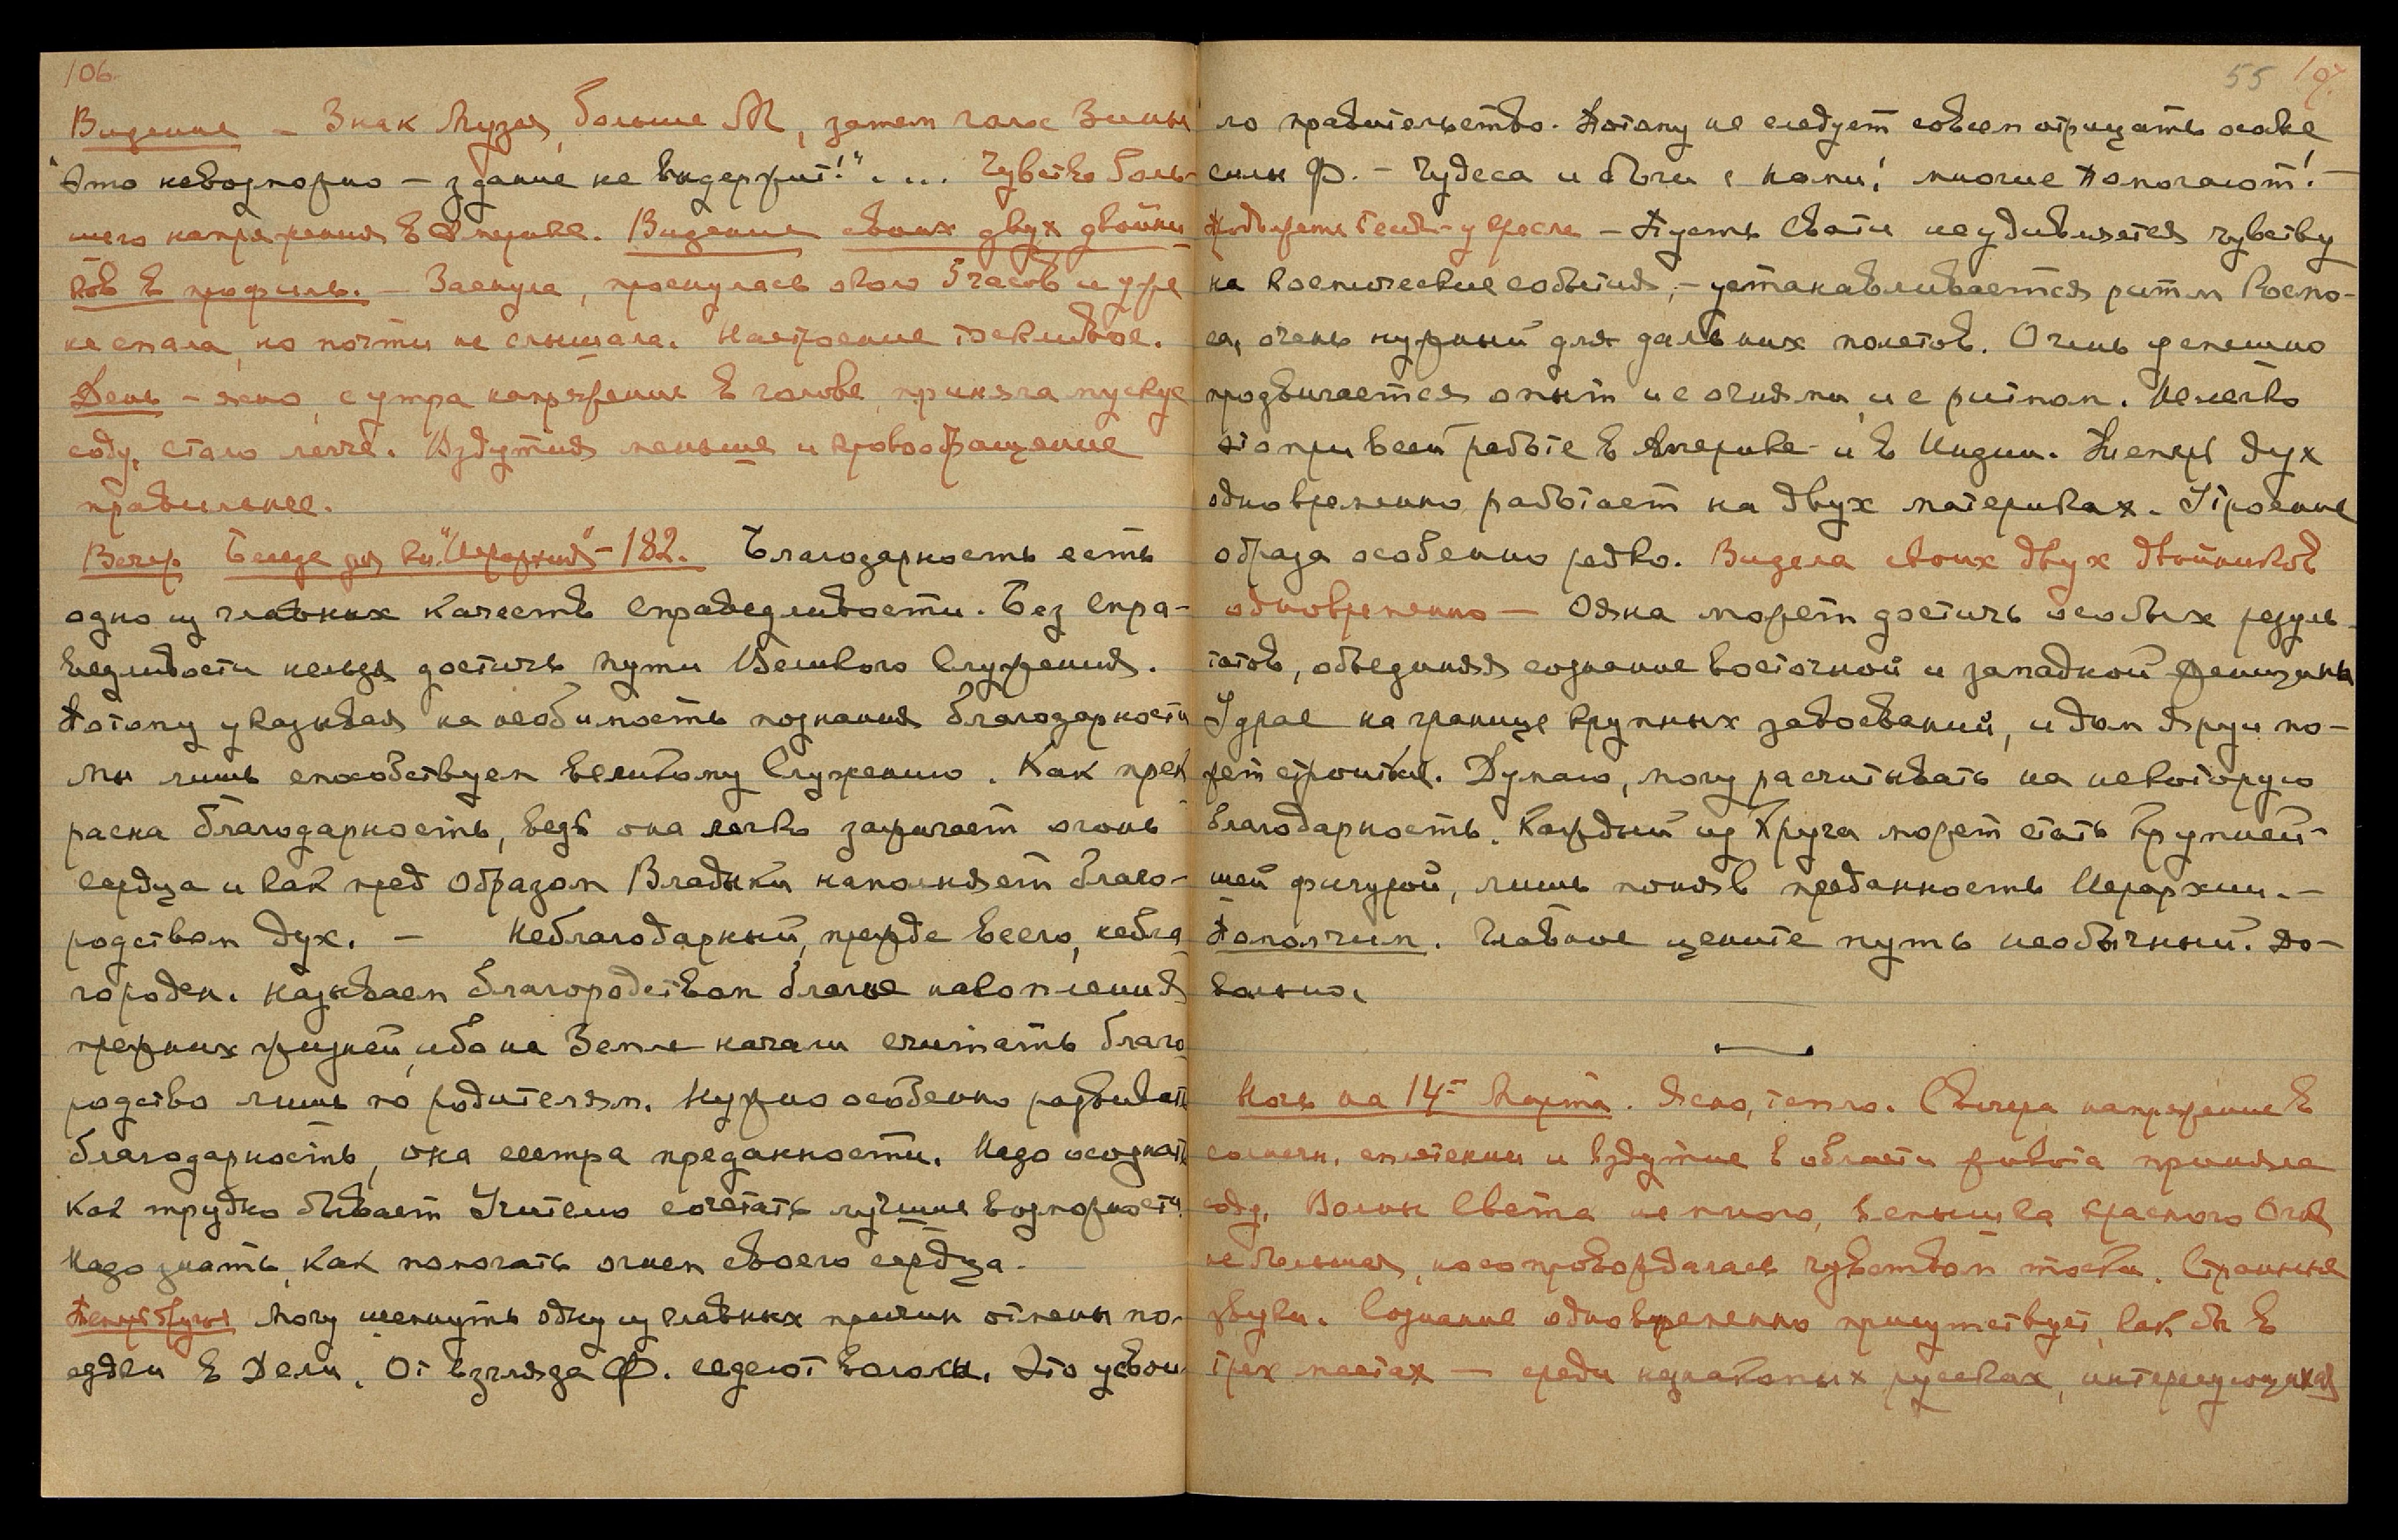 106
Видение – Знак Музея, больше М, затем голос Зины
"Это невозможно – здание не выдержит!".... Чувство боль-
шего напряжения в Америке. Видение своих двух двойни-
ков в профиль. – Заснула, проснулась около 5 часов и уже
не спала, но почти не слышала. Настроение тоскливое.
День – ясно, с утра напряжение в голове, приняла мускус
соду, стало легче. Вздутия меньше и кровообращение
правильнее.
Вечер Беседа для кн. "Иерархия" – 182. Благодарность есть
одно из главных качеств справедливости. Без спра-
ведливости нельзя достичь пути Великого Служения.
Потому указывая на необимость познания благодарности
Мы лишь способствуем великому Служению. Как прек
расна благодарность, ведь она легко зажигает огонь
сердца и как пред Образом Владыки наполняет благо-
родством дух. – Неблагодарный, прежде всего, небла-
городен. Называем благородством благие накопления
прежних жизней, ибо на Земле начали считать благо-
родство лишь по родителям. Нужно особенно развивать
благодарность, она сестра преданности. Надо осознать
как трудно бывает Учителю сочетать лучшие возможности.
Надо знать, как помогать огнем своего сердца.
Теперь другое Могу шепнуть одну из главных причин отмены по-
ездки в Дели. От взгляда Ф. седеют волосы. Это усвои-
55 107.
ло правительство. Потому не следует совсем отрицать особые
силы Ф. – Чудеса и Боги с нами! многие помогают! –
– Пусть Свати не удивляется чувству
на космические события, – устанавливается ритм Космо-
са, очень нужный для дальних полетов. Очень успешно
продвигается опыт и с огнями и с ритмом. Нелегко
это при всей работе в Америке и в Индии. Теперь дух
одновременно работает на двух материках. Утроение
образа особенно редко. Видела своих двух двойников
одновременно – Ояна может достичь особых резуль-
татов, объединяя сознание восточной и западной женщины
Удрае на границе крупных завоеваний, и дом Яруи мо-
жет строиться. Думаю, могу расчитывать на некоторую
благодарность. Каждый из Круга может стать крупней-
шей фигурой, лишь поняв преданность Иерархии. –
Помолчим. Главное цените путь необычный. До-
вольно.
Ночь на 14-е Марта. Ясно, тепло. С вечера напряжение в
солнечн. сплетении и вздутие в области живота приняла
соду. Волны Света не много, вспышка красного Огня
не большая, но сопровождалась чувством тоски. Странные
звуки. Сознание одновременно присутствует, как бы в
трех местах – среди незнакомых русских, интересующихся